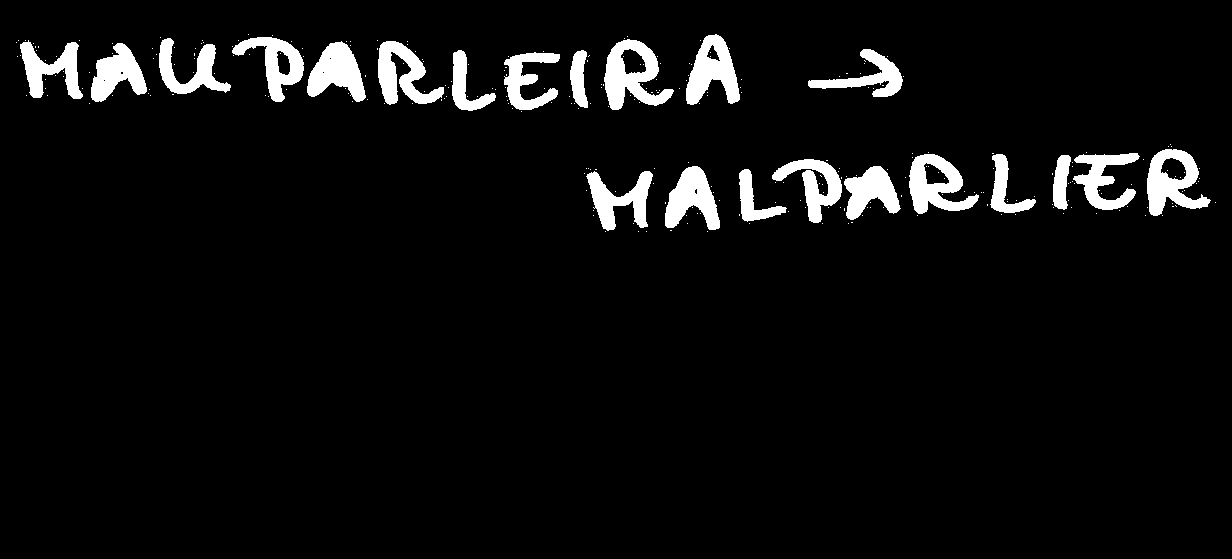 MAUPARLEIRA →
MALPARLIER